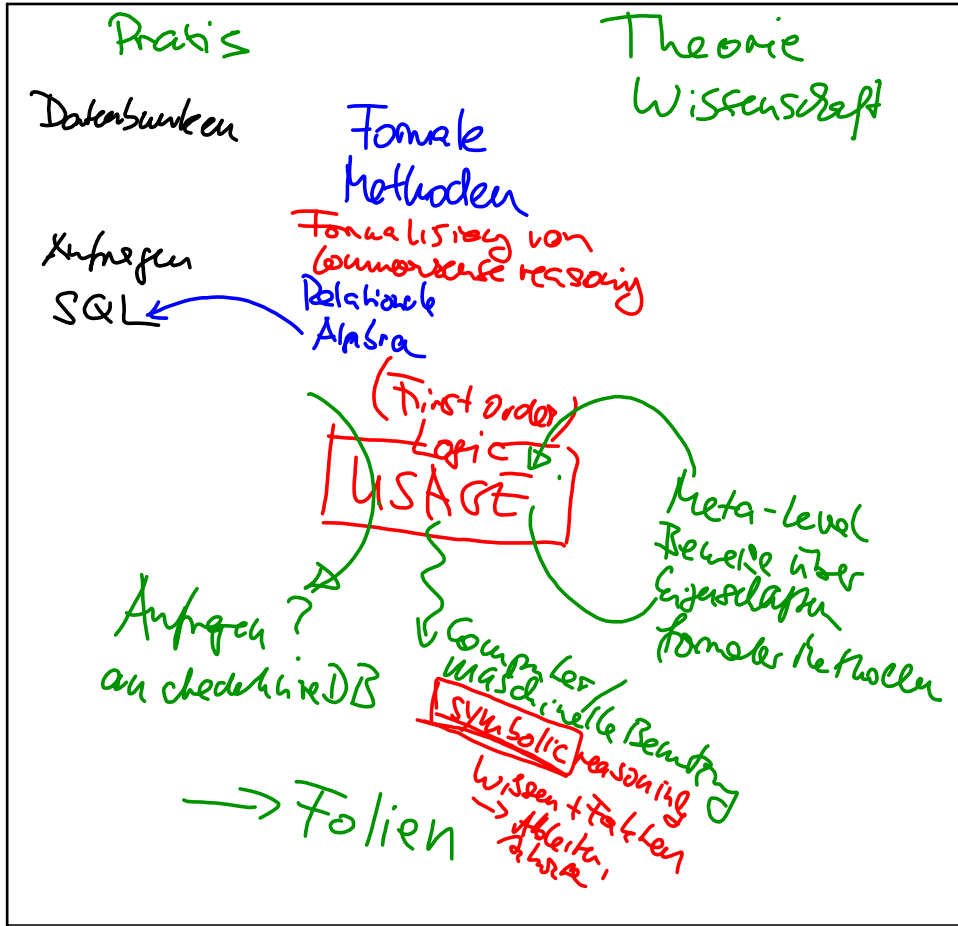 Praxis
Theorie
Wissenschaft
Datenbanken
Formale
Methoden
Formalisierung von
commonsense reasoning
Anfragen
SQL
Relationale
Algebra
(First Order)
Logic
USAGE
Meta-Level
Beweise über
Eigenschaften
formaler Methoden
Anfragen ?
an deduktive DB
Computer/
maschinelle Benutzung
symbolic reasoning
Wissen + Fakten
→ Ableiten,
→ Folien